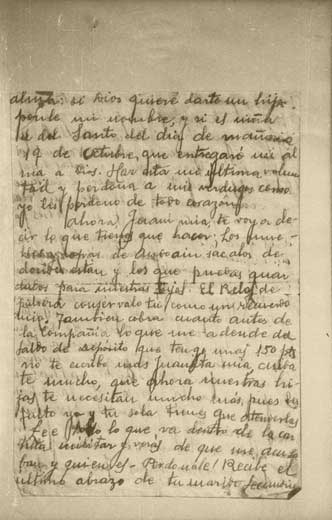 si Dios quiere darte un hijo
ponle mi nombre, y si es niña
el del Santo del día de mañana
19 de Octubre, que entregaré mi al
ma a Dios. Haz esta mi última volun
tad y perdona a mis verdugos como
yo les perdono de todo corazón.
Ahora Juani mia, te voy a de
cir lo que tienes que hacer; Los
de sacalos de
donde estan y los que puedas guar
dalos para nuestras hijas. El Reloj de
pulsera conservalo tu como un recuerdo
mio. Tambien cobra cuanto antes de
la Compañia lo que me adende del
saldo de depósito que tengo unas 150 pts
no te escribo mas Juanita mia, cuida
te mucho, que ahora nuestras hi
jas te necesitan mucho más, pues
falto yo y tu sola tienes que atenderlas
Lee todo lo que va dentro de la car
tilla militar y verás de que me acu
san y quienes - Perdonale! Recibe el
ultimo abrazo de tu marido Secundino